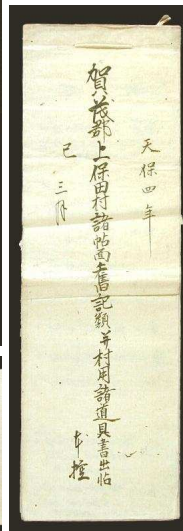 天保四年
賀茂郡上保田村諸帖面古書記類并村用諸道具書出帖
巳三月
本控